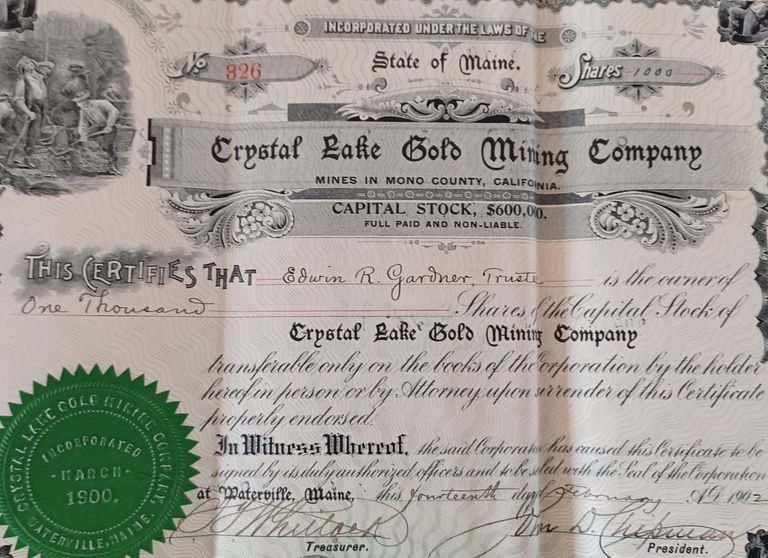 INCORPORATED UNDER THE LAWS OF
State of Maine.
No 326
Shares 1000
Crystal Lake Gold Mining Company
MINES IN MONO COUNTY, CALIFORNIA.
CAPITAL STOCK, $600,00.
FULL PAID AND NON-LIABLE.
THIS CERTIFIES THAT Edwin R. Gardner, Truste is the owner of
One Thousand Shares of the Capital Stock of
Crystal Lake Gold Mining Company
transferable only on the books of the Corporation by the holder
hereof in person or by Attorney upon surrender of this Certificate
properly endorsed.
In Witness Whereof, the said Corporation has caused this Certificate to be
signed by its duly authorized officers and to be sealed with the Seal of the Corporation
at Waterville, Maine, this fourteenth day of February A.D. 1902
Wm D. Chipman
Treasurer.
President.
CRYSTAL LAKE GOLD MINING COMPANY
INCORPORATED
MARCH
1900.
WATERVILLE, MAINE.